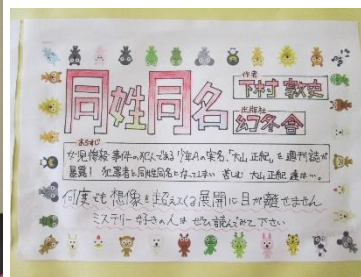 同姓同名
作者
下村敦史
出版社
幻冬舎
あらすじ
女児惨殺事件の犯人である少年Aの実名、「大山正紀」を週刊誌が
暴露! 犯罪者と同姓同名となってしまい苦しむ 大山正紀達は…。
何度も想像を超えてくる展開に目が離せません
ミステリー好きの人はぜひ読んでみて下さい